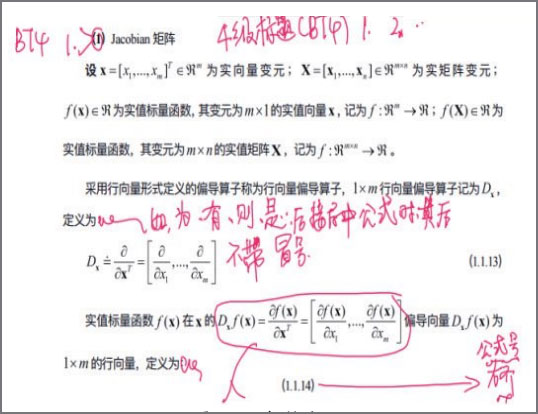 BT4 1. (1) Jacobian 矩阵 4级标题(BT4) 1. 2. ..
设 x = [x₁,...,xₘ]ᵀ ∈ ℜᵐ 为实向量变元；X = [x₁,...,xₙ] ∈ ℜᵐˣⁿ 为实矩阵变元；
f(x) ∈ ℜ 为实值标量函数，其变元为 m×1 的实值向量 x，记为 f : ℜᵐ → ℜ；f(X) ∈ ℜ 为
实值标量函数，其变元为 m×n 的实值矩阵 X，记为 f : ℜᵐˣⁿ → ℜ。
采用行向量形式定义的偏导算子称为行向量偏导算子，1×m 行向量偏导算子记为 Dₓ，
定义为 为、有、则、是：后接居中公式时其后
不带冒号
Dₓ ≐ ∂/∂xᵀ = [∂/∂x₁,...,∂/∂xₘ] (1.1.13)
实值标量函数 f(x) 在 x 的 Dₓf(x) = ∂f(x)/∂xᵀ = [∂f(x)/∂x₁,...,∂f(x)/∂xₘ] 偏导向量 Dₓf(x) 为
1×m 的行向量，定义为
公式号
(1.1.14)